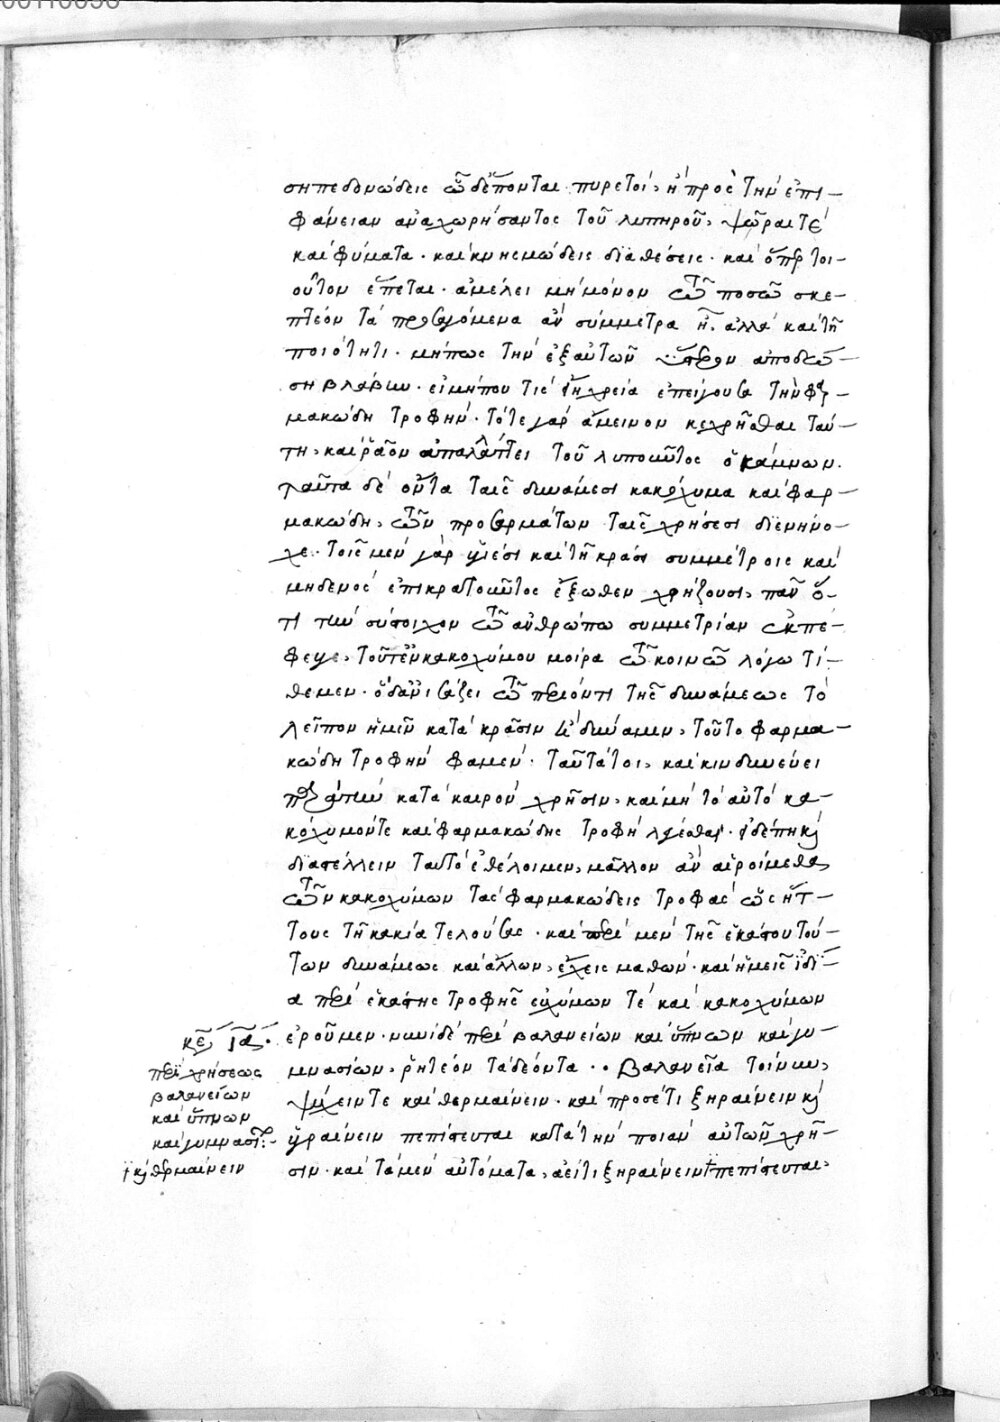 σηπεδονώδεις ὧδ' ἕπονται πυρετοί, ἢ πρὸς τὴν ἐπι-
φάνειαν ἀναχωρήσαντος τοῦ λυπηροῦ, ψῶραι τὲ
καὶ φύματα. καὶ κνησμώδεις διαθέσεις. καὶ ὅπερ τοι-
οῦτον ἕπεται. ἀμέλει μὴ μόνον τῶ ποσῶ σκε-
πτέον τὰ προσαγόμενα ἂν σύμμετρα ἦ, ἀλλὰ καὶ τῆ
ποιότητι. μήπως τὴν ἐξ αὐτῶν ὕστερον ἀποδώ-
ση βλάβην. εἰ μήπου τις ἢ χρεία ἐπείγουσα τὴν φαρ-
μακώδη τροφήν. τότε γὰρ ἄμεινον κεχρῆσθαι ταύ-
τη, καὶ ῥᾶον ἀπαλλάττει τοῦ λυποῦντος ὁ κάμνων.
ταῦτα δὲ ὄντα ταῖς δυνάμεσι κακόχυμα καὶ φαρ-
μακώδη, τῶν προσαρμάτων ταῖς χρήσεσι διενήνο-
χε. τοῖς μὲν γὰρ ὑγιέσι καὶ τῆ κράσι συμμέτροις καὶ
μηδενὸς ἐπικρατοῦντος ἔξωθεν χρήζουσι, πᾶν ὅ-
τι τὴν σύστοιχον τῶ ἀνθρώπω συμμετρίαν ἐκπέ-
φευγε, τοῦτ' ἐν κακοχύμου μοίρα τῶ κοινῶ λόγω τί-
θεμεν. ὃ δ' ἀνισάζει τῶ περιόντι τῆς δυνάμεως τὸ
λεῖπον ἡμῖν κατὰ κρᾶσιν καὶ δύναμιν, τοῦτο φαρμα-
κώδη τροφὴν φαμέν. ταῦτά τοι, καὶ κινδυνεύει
παρὰ τὴν κατὰ καιρὸν χρῆσιν, καὶ μὴ τὸ αὐτὸ κα-
κόχυμόν τε καὶ φαρμακώδης τροφὴ λέγεσθαι. εἰ δέ πη καὶ
διαστέλλειν ταυτὸ ἐθέλοιμεν, μᾶλλον ἂν αἱροίμεθα
τῶν κακοχύμων τὰς φαρμακώδεις τροφὰς ὡς ἥτ-
τους τῆ κακία τελούσας. καὶ περὶ μὲν τῆς ἑκάστου τού-
των δυνάμεως καὶ ἄλλων, ἔχεις μαθών. καὶ ἡμεῖς ἰδί-
α περὶ ἑκάστης τροφῆς εὐχύμων τὲ καὶ κακοχύμων
ἐροῦμεν. νυνὶ δὲ περὶ βαλανείων καὶ ὕπνων καὶ γυ-
μνασίων, ῥητέον τὰ δέοντα.. βαλανεῖα τοίνυν,
ψύχειν τε καὶ θερμαίνειν. καὶ προσέτι ξηραίνειν καὶ
ὑγραίνειν πεπίστευται κατὰ τὴν ποιὰν αὐτῶν χρῆ-
σιν. καὶ τὰ μὲν αὐτόματα, ἀεί τι ξηραίνειν † πεπίστευται,
κεφ ια.
περὶ χρήσεως
βαλανείων
καὶ ὕπνων
καὶ γυμνασίων
† καὶ θερμαίνειν